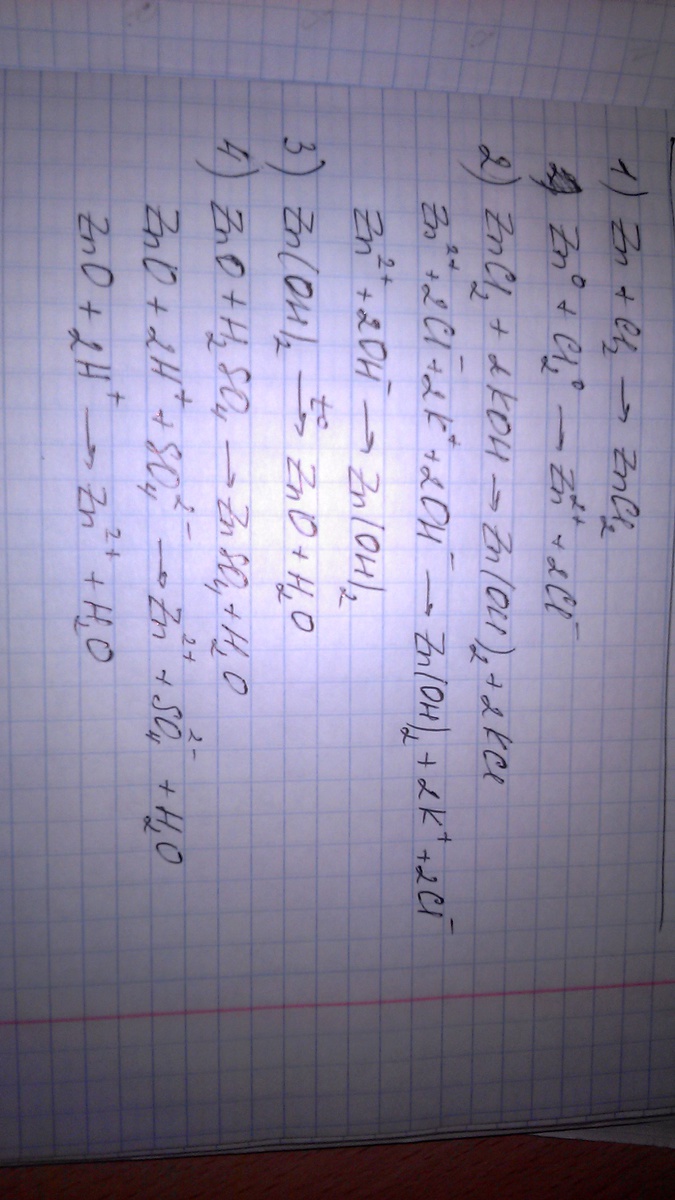 1) Zn + Cl₂ → ZnCl₂
Zn⁰ + Cl₂⁰ → Zn²⁺ + 2Cl⁻
2) ZnCl₂ + 2KOH → Zn(OH)₂ + 2KCl
Zn²⁺ + 2Cl⁻ + 2K⁺ + 2OH⁻ → Zn(OH)₂ + 2K⁺ + 2Cl⁻
Zn²⁺ + 2OH⁻ → Zn(OH)₂
3) Zn(OH)₂ →t° ZnO + H₂O
4) ZnO + H₂SO₄ → ZnSO₄ + H₂O
ZnO + 2H⁺ + SO₄²⁻ → Zn²⁺ + SO₄²⁻ + H₂O
ZnO + 2H⁺ → Zn²⁺ + H₂O